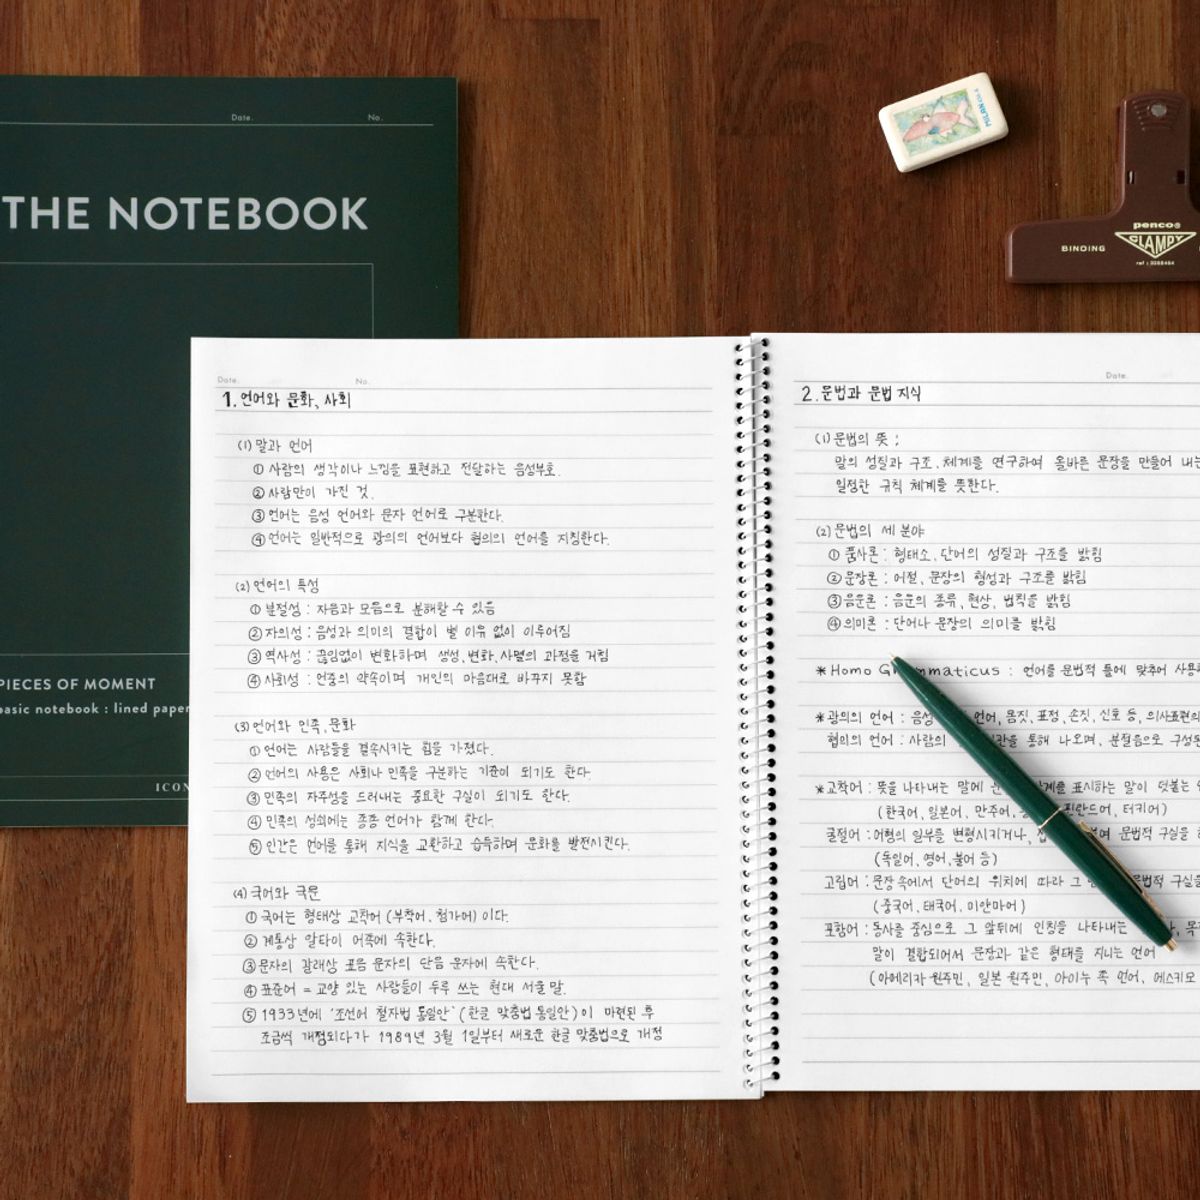 Date.
No.
THE NOTEBOOK
PIECES OF MOMENT
basic notebook : lined paper
ICON
MILAN
penco®
BINDING
CLAMPY
Date.
No.
1. 언어와 문화, 사회
(1) 말과 언어
① 사람의 생각이나 느낌을 표현하고 전달하는 음성부호.
② 사람만이 가진 것.
③ 언어는 음성 언어와 문자 언어로 구분한다.
④ 언어는 일반적으로 광의의 언어보다 협의의 언어를 지칭한다.
(2) 언어의 특성
① 분절성 : 자음과 모음으로 분해할 수 있음
② 자의성 : 음성과 의미의 결합이 별 이유 없이 이루어짐
③ 역사성 : 끊임없이 변화하며 생성, 변화, 사멸의 과정을 거침
④ 사회성 : 언중의 약속이며 개인의 마음대로 바꾸지 못함
(3) 언어와 민족, 문화
① 언어는 사람들을 결속시키는 힘을 가졌다.
② 언어의 사용은 사회나 민족을 구분하는 기준이 되기도 한다.
③ 민족의 자주성을 드러내는 중요한 구실이 되기도 한다.
④ 민족의 성쇠에는 종종 언어가 함께 한다.
⑤ 인간은 언어를 통해 지식을 교환하고 습득하며 문화를 발전시킨다.
(4) 국어와 국문
① 국어는 형태상 교착어 (부착어, 첨가어) 이다.
② 계통상 알타이 어족에 속한다.
③ 문자의 갈래상 표음 문자의 단음 문자에 속한다.
④ 표준어 = 교양 있는 사람들이 두루 쓰는 현대 서울 말.
⑤ 1933년에 '조선어 철자법 통일안' (한글 맞춤법 통일안) 이 마련된 후
조금씩 개정되다가 1989년 3월 1일부터 새로운 한글 맞춤법으로 개정
Date.
2. 문법과 문법 지식
(1) 문법의 뜻 ;
말의 성질과 구조, 체계를 연구하여 올바른 문장을 만들어 내는
일정한 규칙 체계를 뜻한다.
(2) 문법의 세 분야
① 품사론 : 형태소, 단어의 성질과 구조를 밝힘
② 문장론 : 어절, 문장의 형성과 구조를 밝힘
③ 음운론 : 음운의 종류, 현상, 법칙을 밝힘
④ 의미론 : 단어나 문장의 의미를 밝힘
* Homo : 언어를 문법적 틀에 맞추어
* 광의의 언어 : 언어, 몸짓, 표정, 손짓, 신호 등,
협의의 언어 : 사람의 통해 나오며, 분절음으로
* 교착어 : 뜻을 나타내는 말에 표시하는 말이 덧붙는
(한국어, 일본어, 만주어, 핀란드어, 터키어)
굴절어 : 어형의 일부를 변형시키거나, 문법적 구실을
(독일어, 영어, 불어 등)
고립어 : 문장 속에서 단어의 위치에 따라 그
(중국어, 태국어, 미얀마어)
포함어 : 동사를 중심으로 그 앞뒤에 인칭을 나타내는
말이 결합되어서 문장과 같은 형태를 지니는 언어
(아메리카 원주민, 일본 원주민, 아이누 족 언어, 에스키모